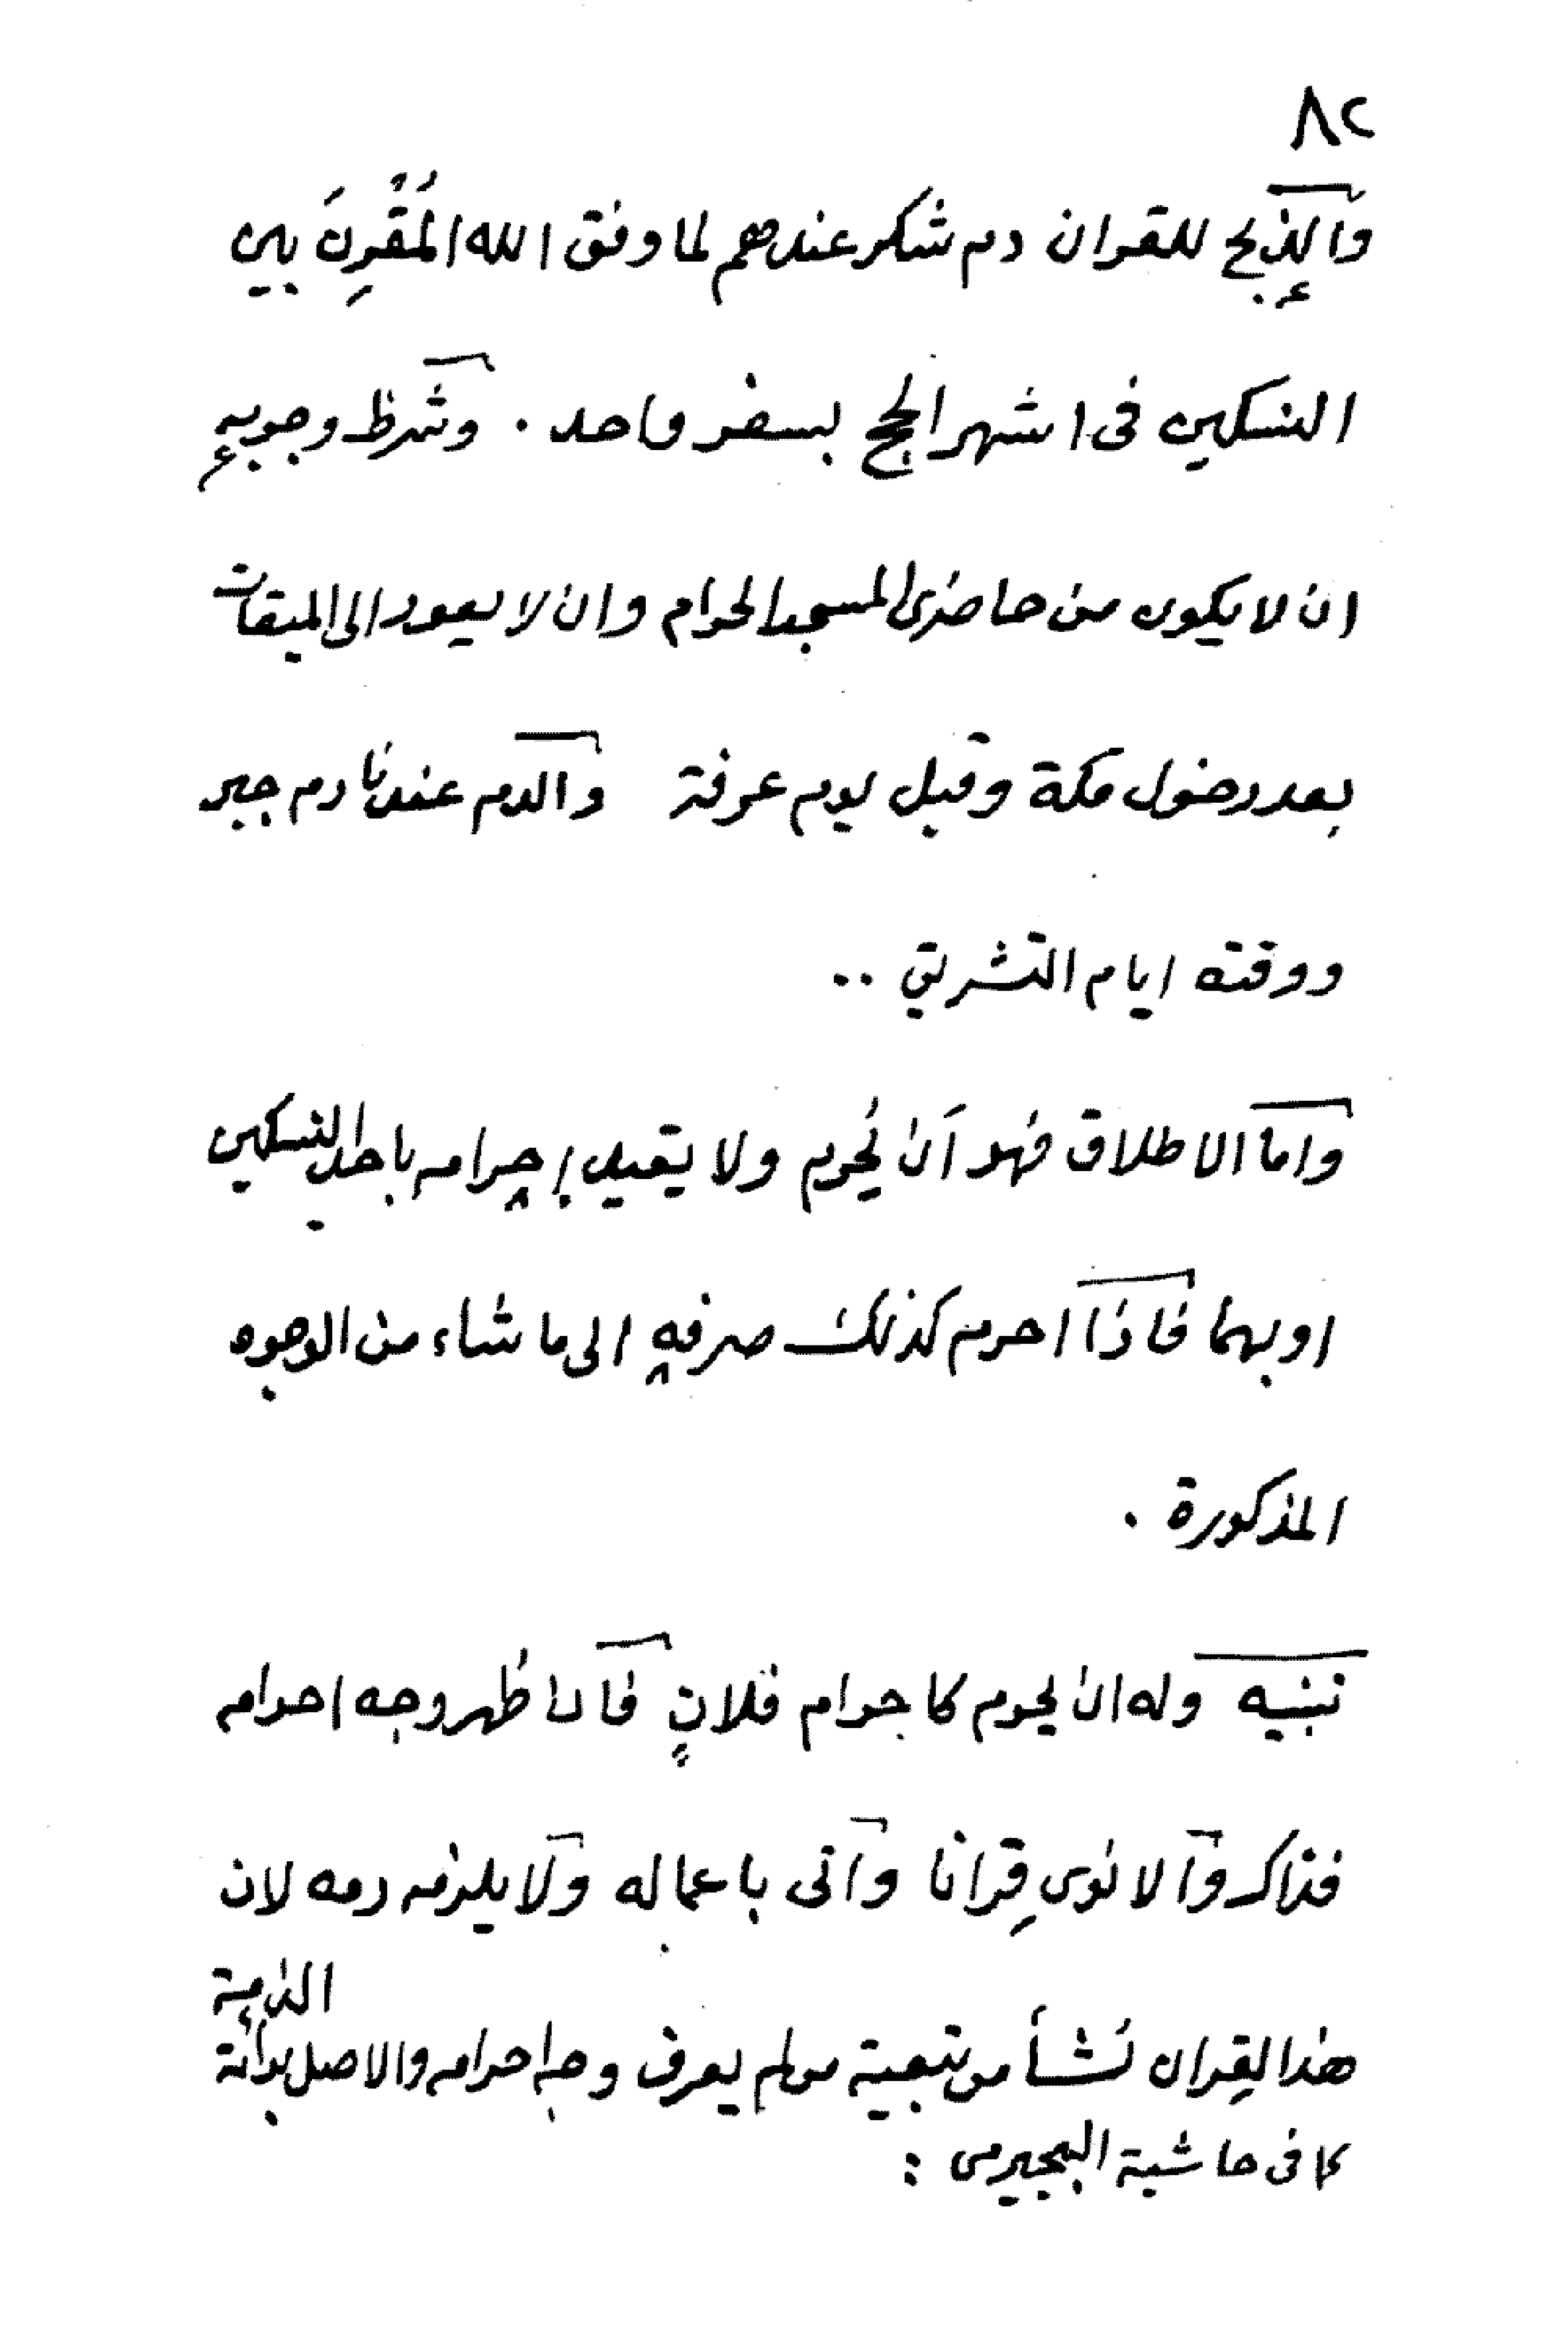 ٨٢
والذبح للقران دم شكر عندهم لما وفق الله المُقْرِنَ بين
النسكين فى اشهر الحج بسفر واحد . وشرط وجوبه
ان لا يكون من حاضرى المسجد الحرام وان لا يعود الى الميقات
بعد دخول مكة وقبل يوم عرفة والدم عندنا دم جبر
ووقته ايام التشريق ..
واما الاطلاق فهو أن يُحرم ولا يقيد إحرامه باحد النسكين
او بهما فاذا احرم كذلك صرفه الى ما شاء من الوجوه
المذكورة .
تنبيه وله ان يحرم كاحرام فلانٍ فان ظهر وجه احرامه
فذاك والا نوى قِرانا وأتى باعماله ولا يلزمه دمه لان
هذا القِران نشأ من تبعية من لم يعرف وجه احرامه والاصل برائة الذمة
كما فى حاشية البجيرمى :